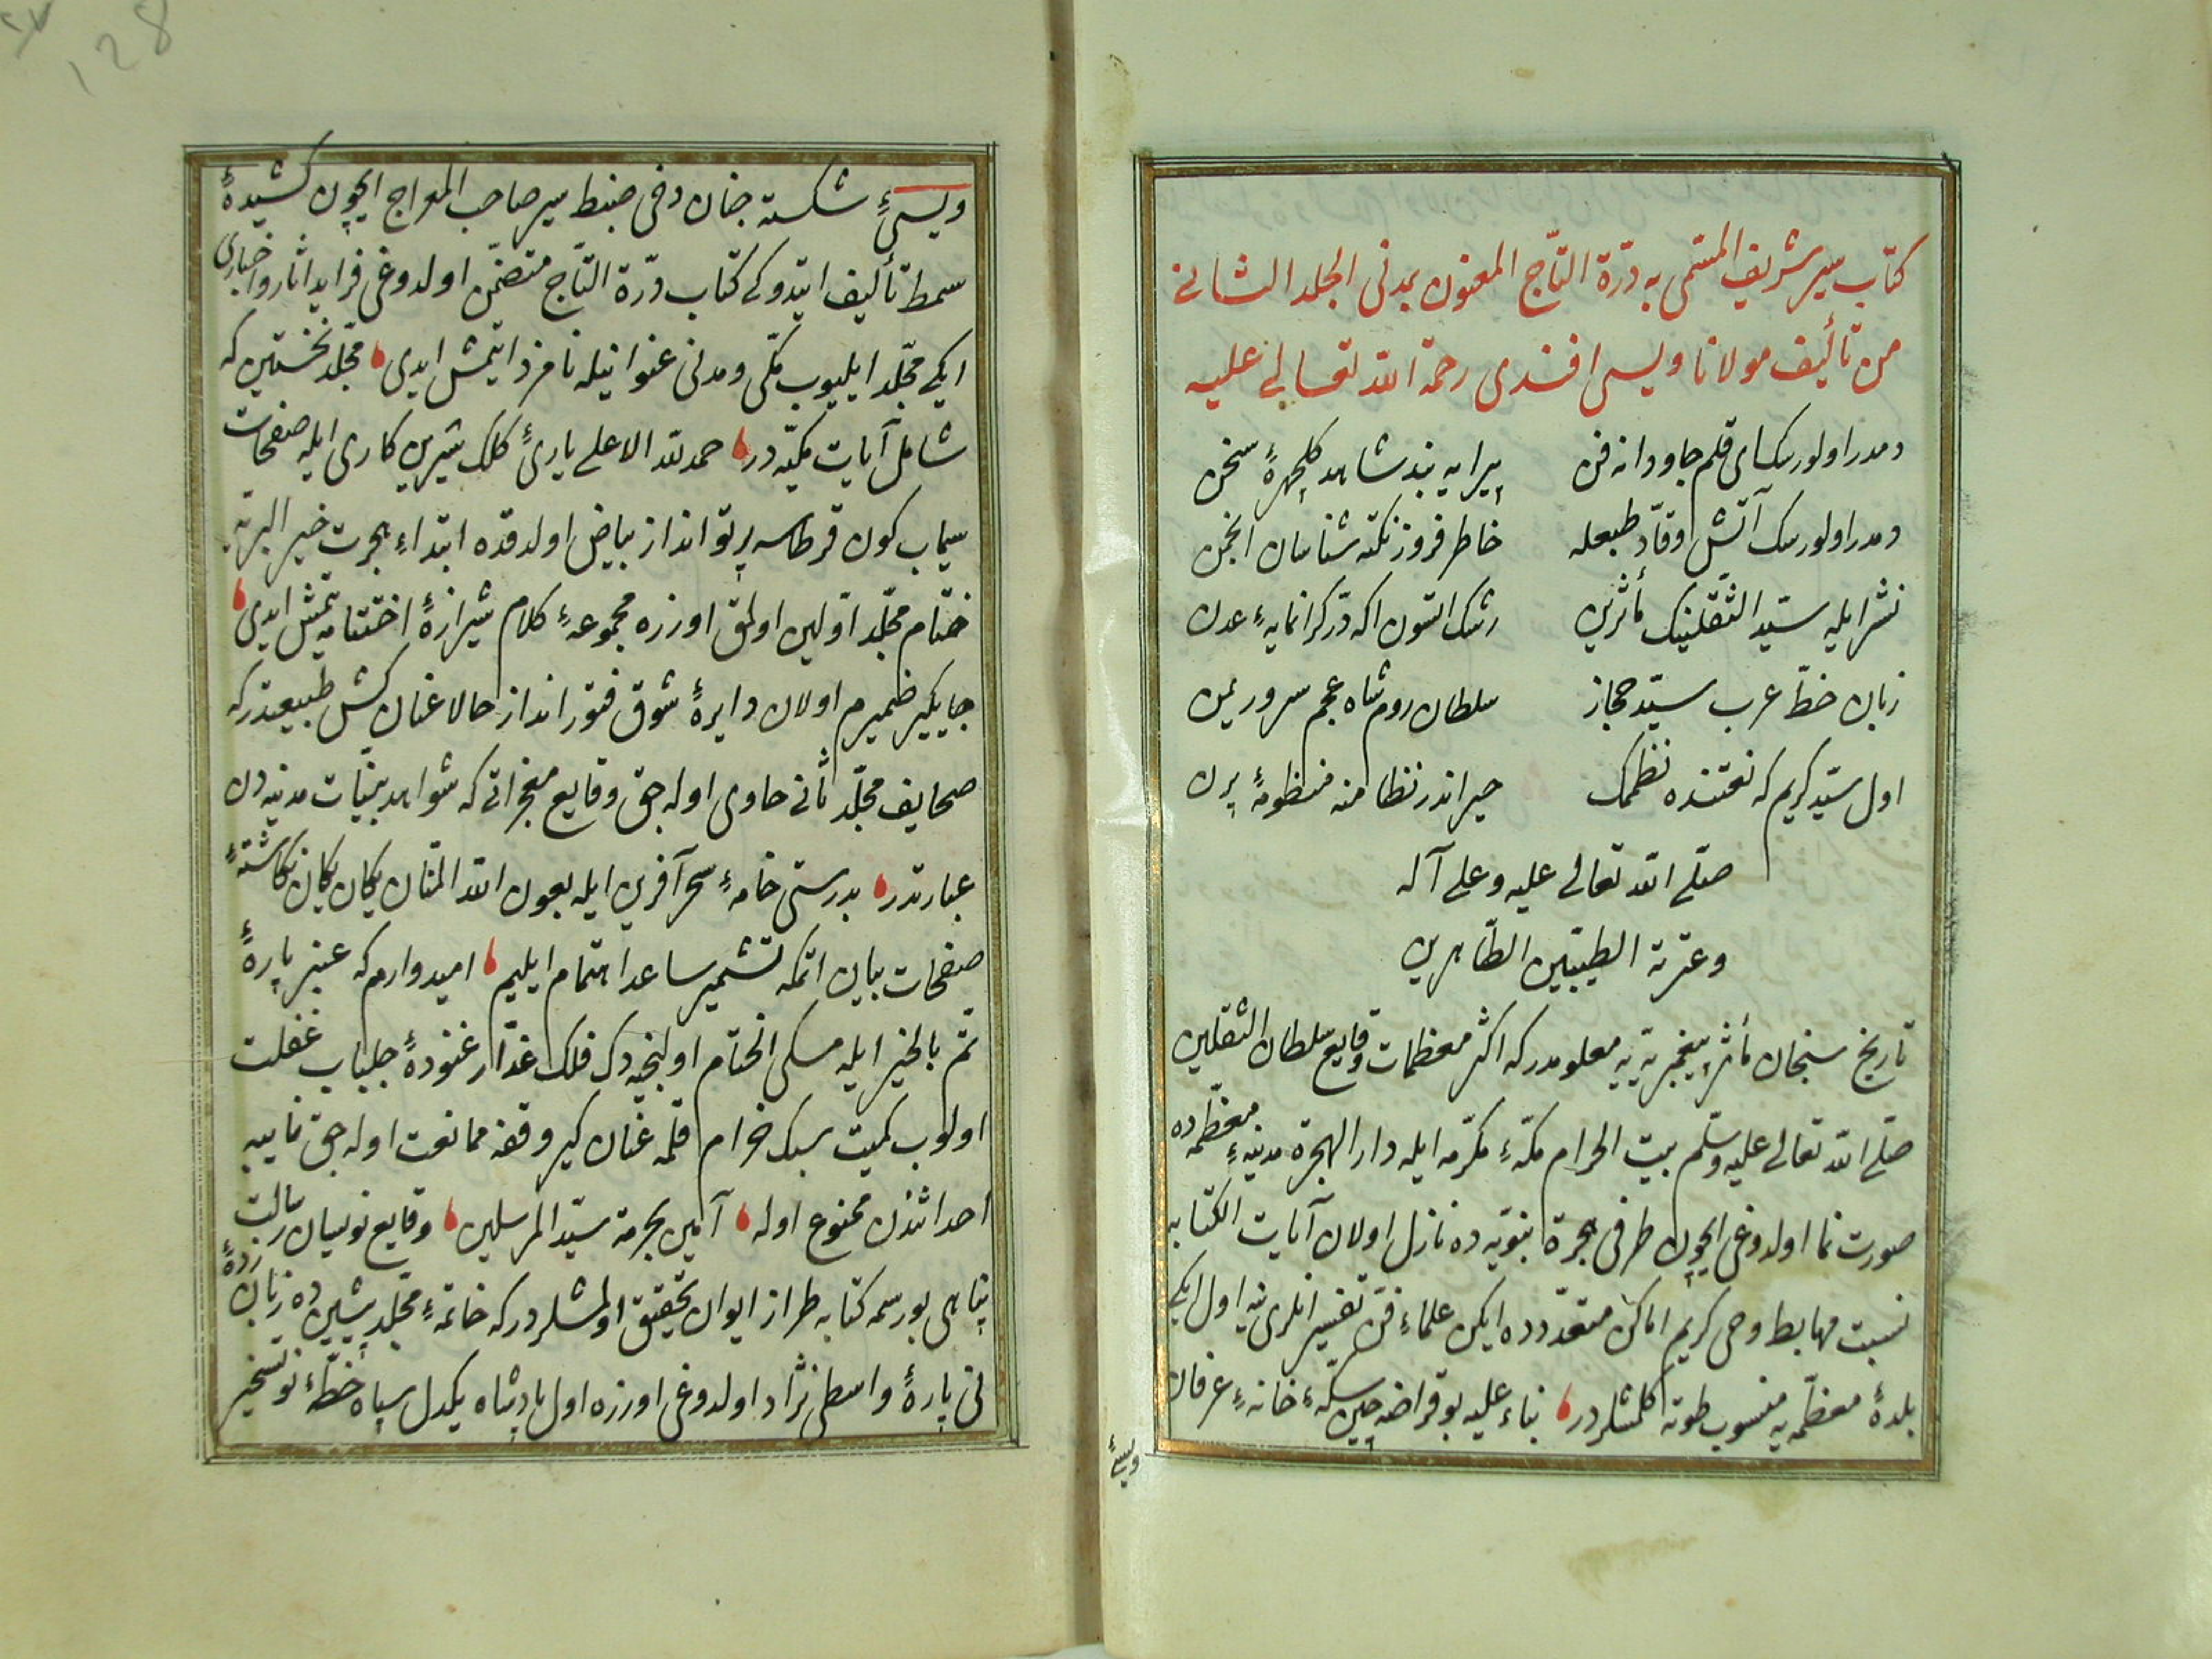 كتاب سير شريف المسمى به درّة التّاج المعنون بمدنى الجلد الثانى
من تأليف مولانا ويسى افندى رحمة الله تعالى عليه
دمدر اولورسك اى قلم جاودانه فن
پيرايه بند شاهد گلچهرهٔ سخن
دمدر اولورسك آتش وقّاد طبعله
خاطر فروز نكته شناسان انجمن
نشر ايله سيّد الثّقلينك مأثرين
رشك التسون اكه درّ كرانمايهٔ عدن
زبان خطّ عرب سيّد حجاز
سلطان روم شاه عجم سرور يمن
اول سيّد كريم كه نعتنده نظمك
حيراندر نظامنه منظومهٔ پرن
صلّى الله تعالى عليه وعلى آله
وعترته الطيّبين الطّاهرين
تاريخ سنجان مأثر پيغمبريّه يه معلومدركه اكثر معظمات وقايع سلطان الثقلين
صلّى الله تعالى عليه وسلّم بيت الحرام مكّهٔ مكرّمه ايله دار الهجرة مدينهٔ معظّمه ده
صورت نما اولدوغى ايچون طرفى هجرة نبويّه ده نازل اولان آيات الكتابه
نسبت مهابط وحى كريم اماكن متعدّدده ايكن علماء فنّ تفسير انلرى ينه اول ايكى
بلدهٔ معظّمه يه منسوب طوته كلمشلردر بناء عليه بو قراضه چين سكّهٔ خانهٔ عرفان
ويسئ
ويسئ شكسته جنان دخى ضبط سير صاحب المعراج ايچون كشيدهٔ
سمط تأليف ايتدوكى كتاب درّة التّاج متضمّن اولدوغى فرايد اثار واخبارى
ايكى مجلّد ايليوب مكّى ومدنى عنوانيله نامزد ايتمش ايدى مجلّد نخستين كه
شامل آيات مكيّه در حمد لله الاعلى يارئ كلك شيرين كارى ايله صفحات
سيماب كون قرطاسه پرتو انداز بياض اولدقده ابتداء هجرت خير البريّه
ختام مجلّد اوّلين اولمق اوزره مجموعهٔ كلام شيرازهٔ اختتامه يتمش ايدى
جايكير ضميرم اولان دايرهٔ شوق فتور انداز حالا عنان كش طبيعتدركه
صحايف مجلّد ثانى حاوى اوله جق وقايع معجزاتى كه شواهد بيّنات مدنيه دن
عبارتدر بدرستى خامهٔ سحر آفرين ايله بعون الله المنّان يكان يكان نكاشتهٔ
صفحات بيان اتمكه تشمير ساعد اهتمام ايليم اميدوارم كه عنبر پارهٔ
تمّ بالخير ايله مسكى الختام اولنجيه دك فلك غدّار غنودهٔ جلباب غفلت
اولوب كميت سبك خرام قلمه عنان كير وقفه ممانعت اوله جق نايبه
احداثندن ممنوع اوله آمين بحرمة سيّد المرسلين وقايع نويسان رسالت
پناهى بو رسمه كتابه طراز ايوان تحقيق اولمشلردركه خاتمهٔ مجلّد پيشين ده زبان زدهٔ
نى پارهٔ واسطى نژاد اولدوغى اوزره اول پادشاه يكدل سپاه خطّهٔ نو تسخير
128